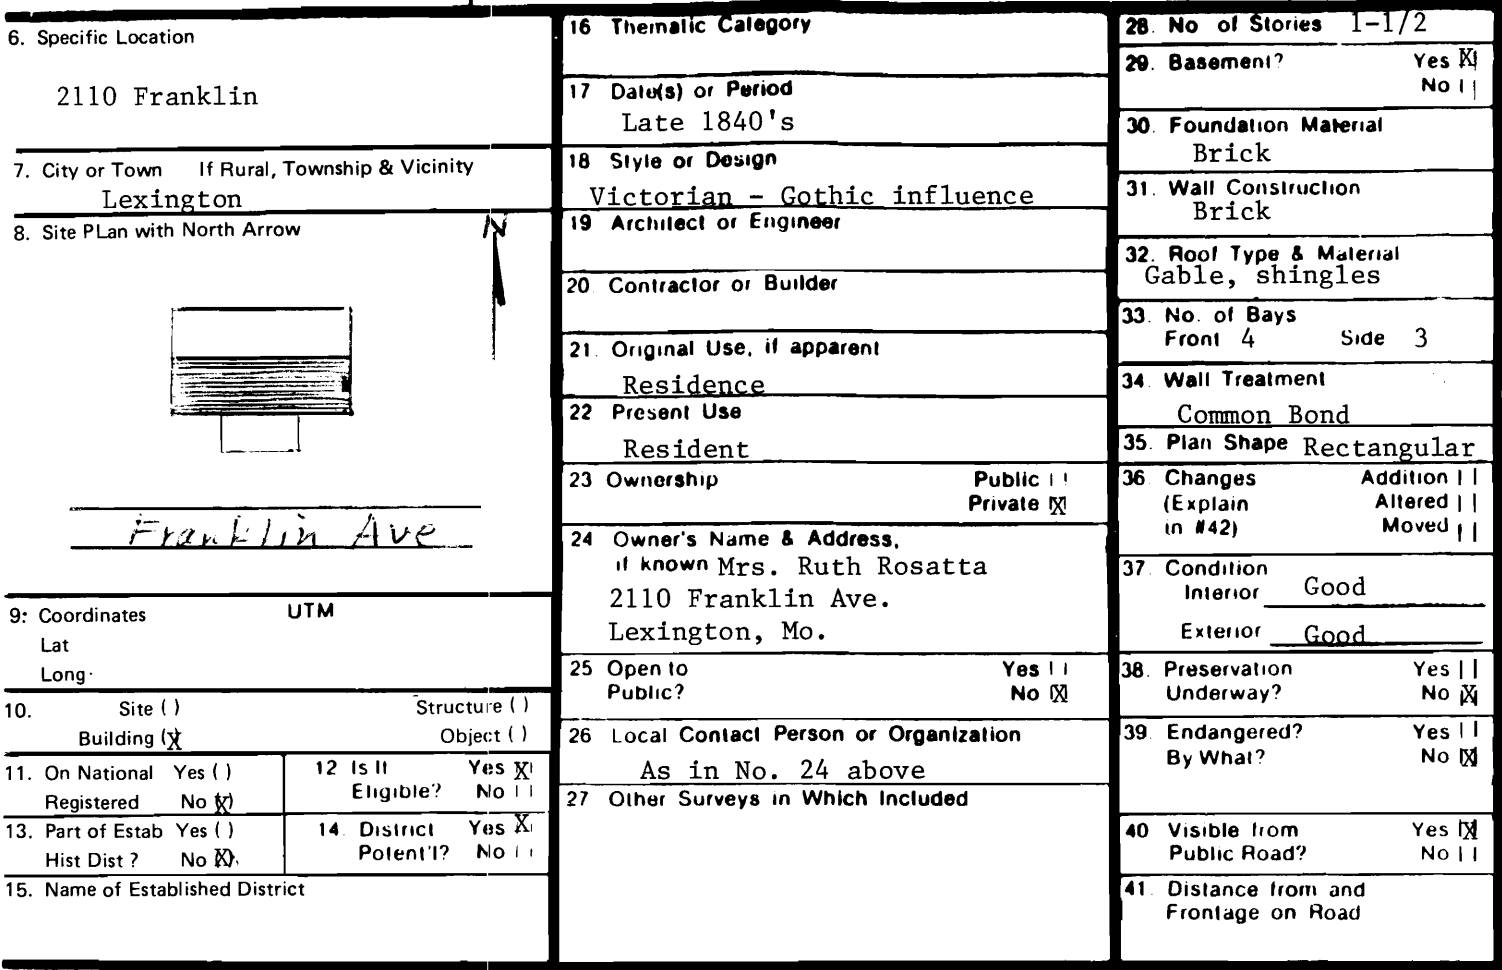 6. Specific Location
2110 Franklin
7. City or Town If Rural, Township & Vicinity
Lexington
8. Site PLan with North Arrow
N
Franklin Ave
9: Coordinates UTM
Lat
Long
10. Site ( ) Structure ( )
Building (X) Object ( )
11. On National Yes ( )
Registered No (X)
12 Is It Yes X
Eligible? No
13. Part of Estab Yes ( )
Hist Dist ? No (X)
14. District Yes X
Potent'l? No
15. Name of Established District
16 Thematic Category
17 Date(s) or Period
Late 1840's
18 Style or Design
Victorian - Gothic influence
19 Architect or Engineer
20 Contractor or Builder
21. Original Use, if apparent
Residence
22 Present Use
Resident
23 Ownership Public
Private X
24 Owner's Name & Address,
if known Mrs. Ruth Rosatta
2110 Franklin Ave.
Lexington, Mo.
25 Open to Yes
Public? No X
26 Local Contact Person or Organization
As in No. 24 above
27 Other Surveys in Which Included
28. No of Stories 1-1/2
29. Basement? Yes X
No
30. Foundation Material
Brick
31. Wall Construction
Brick
32. Roof Type & Material
Gable, shingles
33. No. of Bays
Front 4 Side 3
34. Wall Treatment
Common Bond
35. Plan Shape Rectangular
36 Changes Addition
(Explain Altered
in #42) Moved
37. Condition
Interior Good
Exterior Good
38. Preservation Yes
Underway? No X
39. Endangered? Yes
By What? No X
40 Visible from Yes X
Public Road? No
41. Distance from and
Frontage on Road